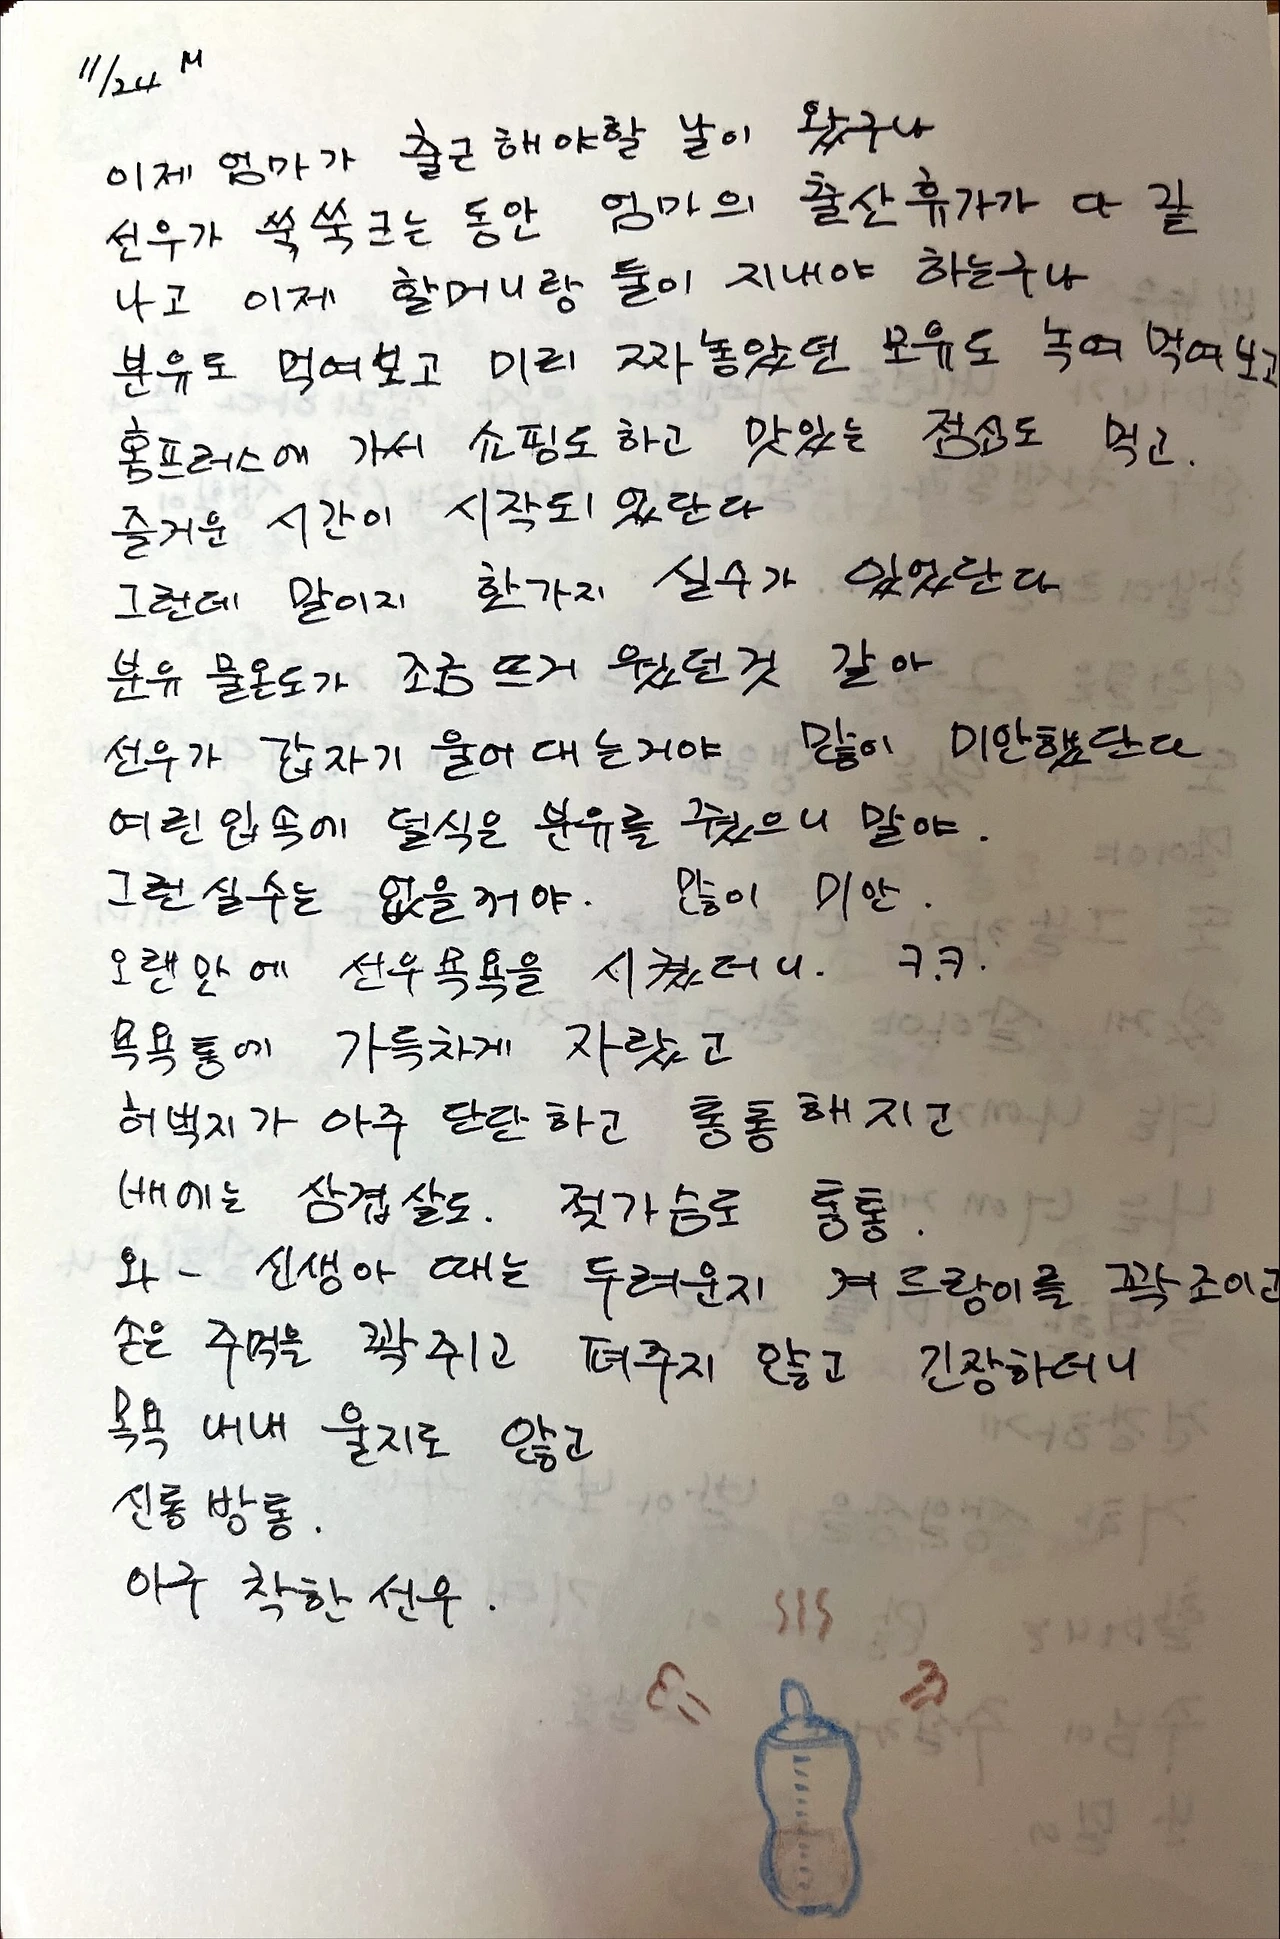 11/24 M
이제 엄마가 출근해야할 날이 왔구나
선우가 쑥쑥크는 동안 엄마의 출산휴가가 다 끝
나고 이제 할머니랑 둘이 지내야 하는구나
분유도 먹여보고 미리 짜놓았던 모유도 녹여 먹여보고
홈프러스에 가서 쇼핑도하고 맛있는 점심도 먹고.
즐거운 시간이 시작되었단다
그런데 말이지 한가지 실수가 있었단다
분유 물온도가 조금 뜨거웠던것 같아
선우가 갑자기 울어대는거야 많이 미안했단다
여린입속에 덜식은 분유를 줬으니 말야.
그런실수는 없을꺼야. 많이 미안.
오랜만에 선우목욕을 시켰더니. ㅋ.ㅋ.
목욕통에 가득차게 자랐고
허벅지가 아주 단단하고 통통해지고
배에는 삼겹살도. 젖가슴도 통통.
와- 신생아 때는 두려운지 겨드랑이를 꽉조이고
손은 주먹을 꽉쥐고 펴주지 않고 긴장하더니
목욕 내내 울지도 않고
신통방통.
아구 착한선우.